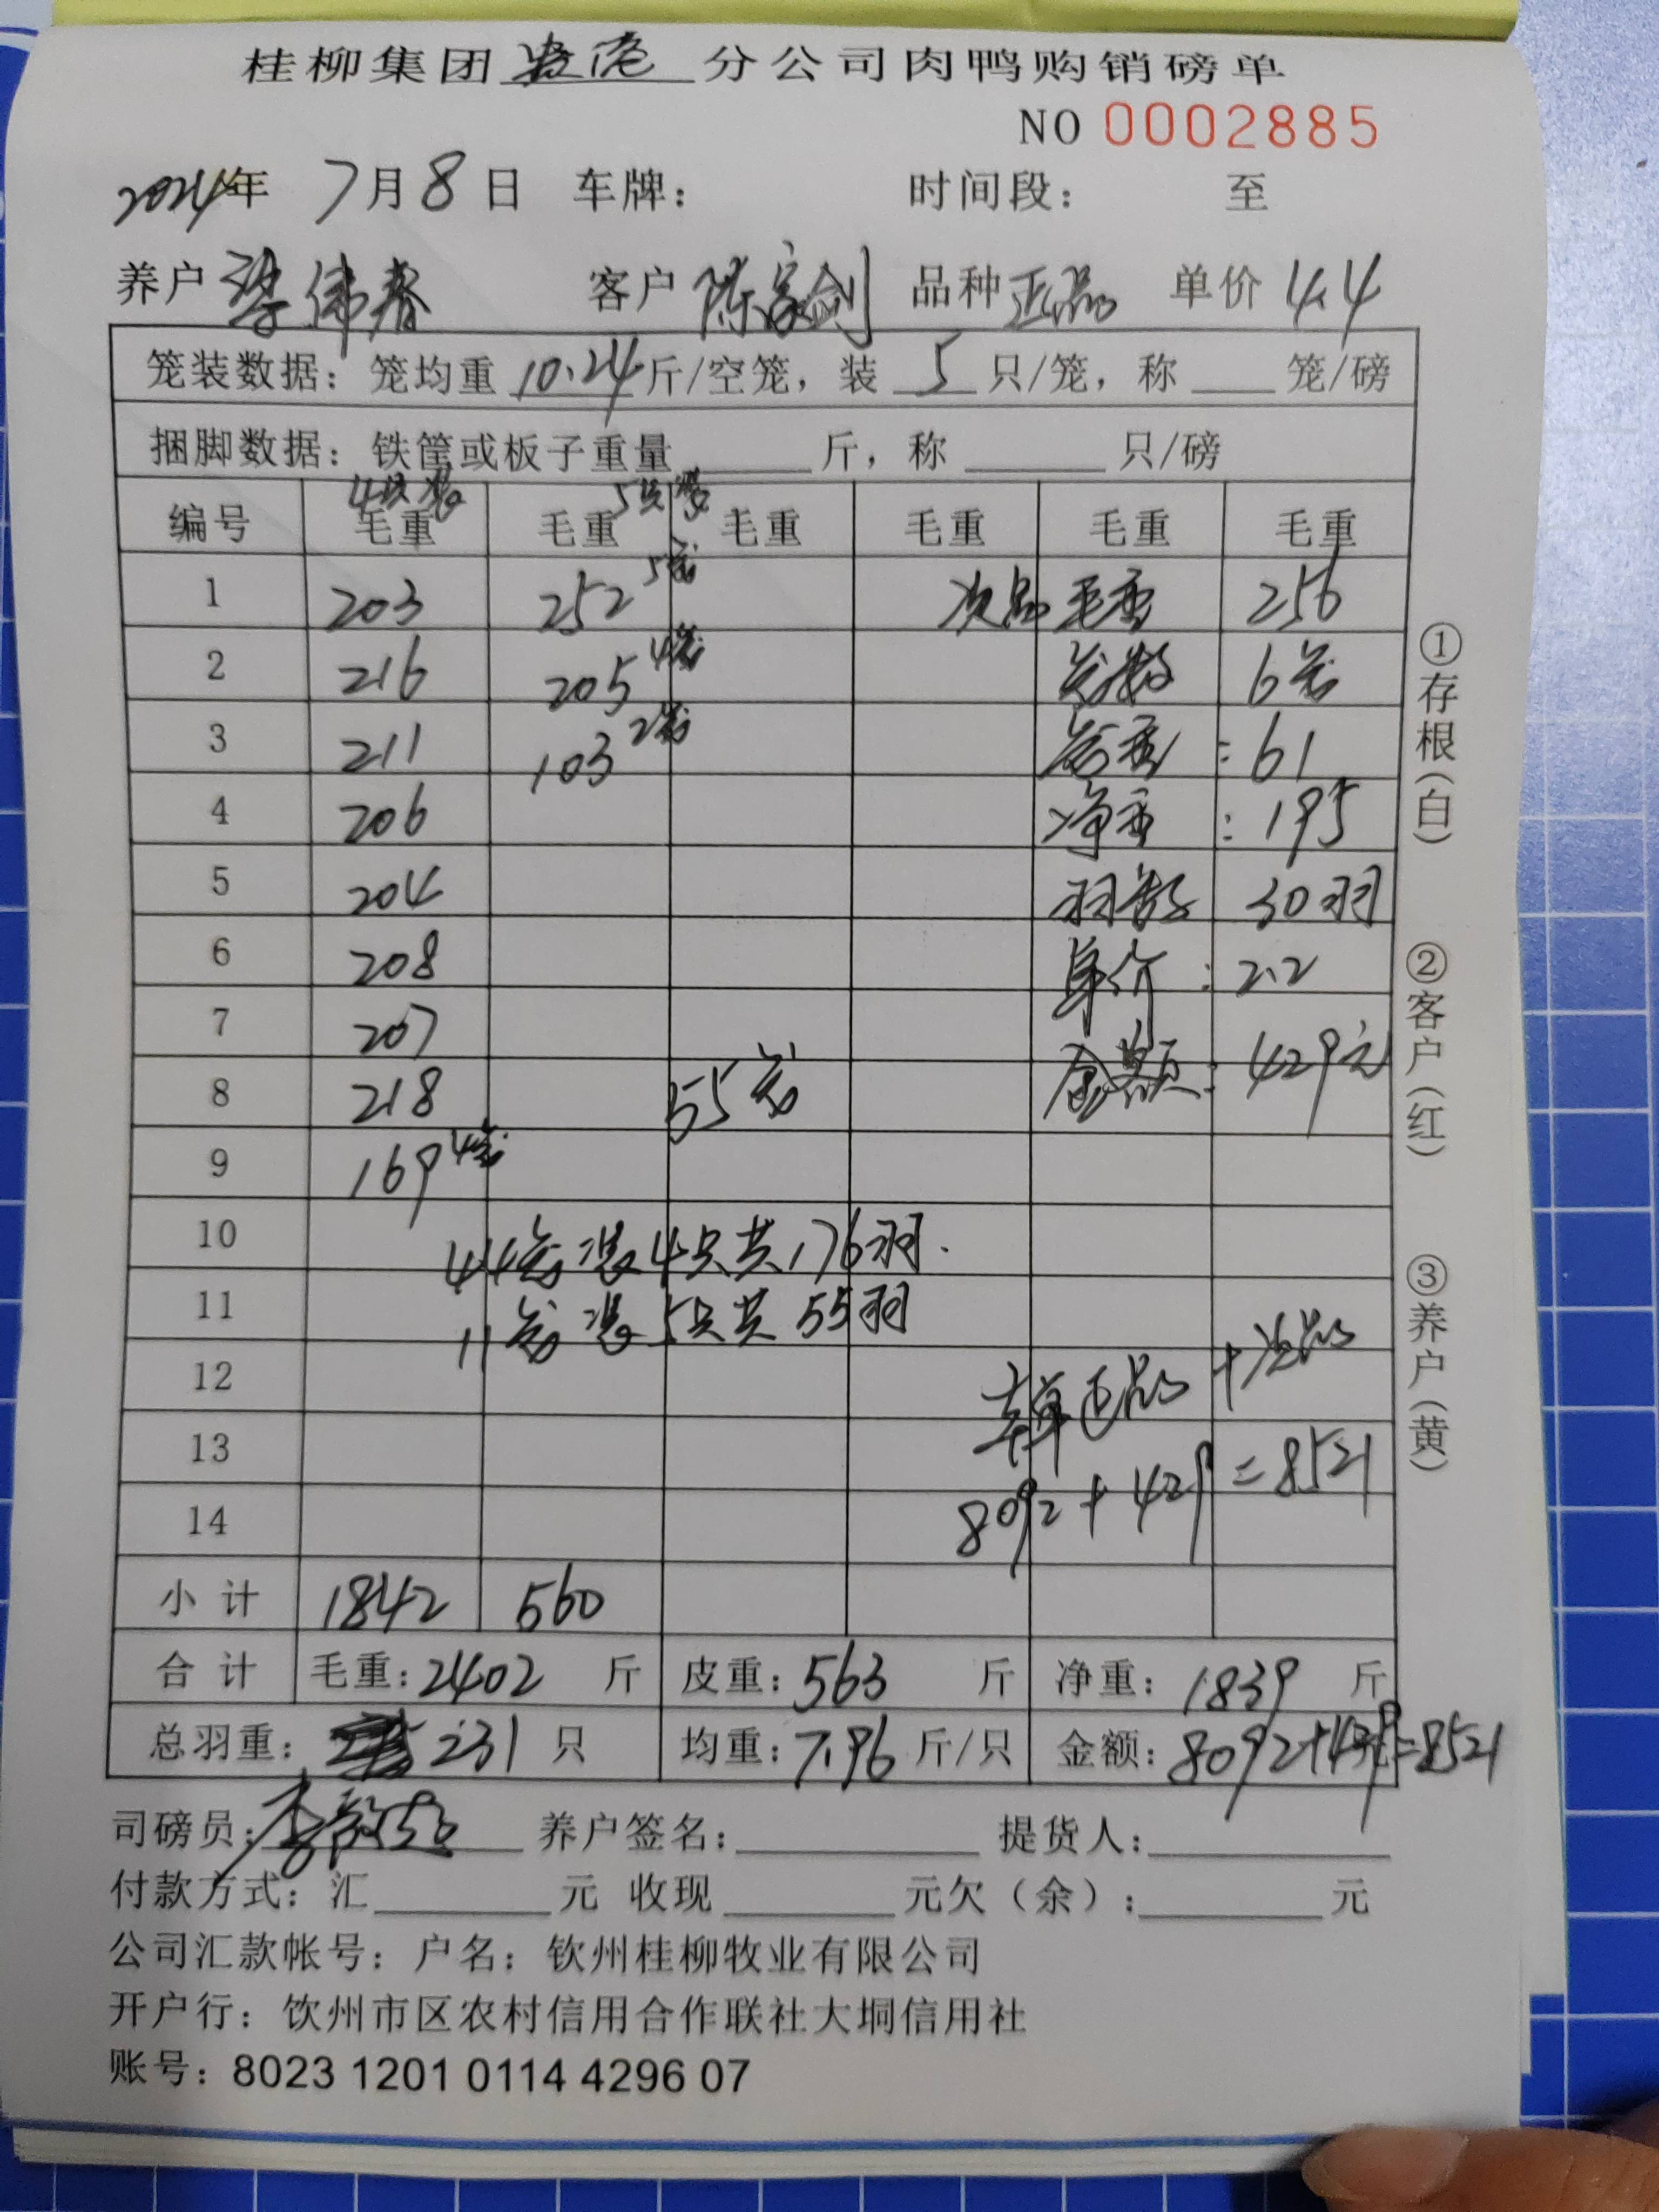 桂柳集团贵港分公司肉鸭购销磅单
NO 0002885
2024年 7月8日 车牌： 时间段： 至
养户 梁伟春 客户 陈家剑 品种 正品 单价 4.4
笼装数据：笼均重 10.24 斤/空笼，装 5 只/笼，称 笼/磅
捆脚数据：铁筐或板子重量 斤，称 只/磅
4只装 5只装
编号 毛重 毛重 毛重 毛重 毛重 毛重
1 203 252 5笼 次品 毛重 256
2 216 205 4笼 笼数 6笼
3 211 103 2笼 笼重：61
4 206 净重：195
5 204 羽数 30羽
6 208 单价：2.2
7 207
8 218 55笼 金额：429元
9 169 4笼
10 44笼装4只共176羽.
11 11笼装5只共55羽
12 正品+次品
13 8092+429=8521
14
小计 1842 560
合计 毛重：2402 斤 皮重：563 斤 净重：1839 斤
总羽重： 231 只 均重：7.96 斤/只 金额：8092+429=8521
司磅员： 养户签名： 提货人：
付款方式：汇 元 收现 元欠（余）： 元
公司汇款帐号：户名：钦州桂柳牧业有限公司
开户行：饮州市区农村信用合作联社大垌信用社
账号：8023 1201 0114 4296 07
①存根（白）
②客户（红）
③养户（黄）